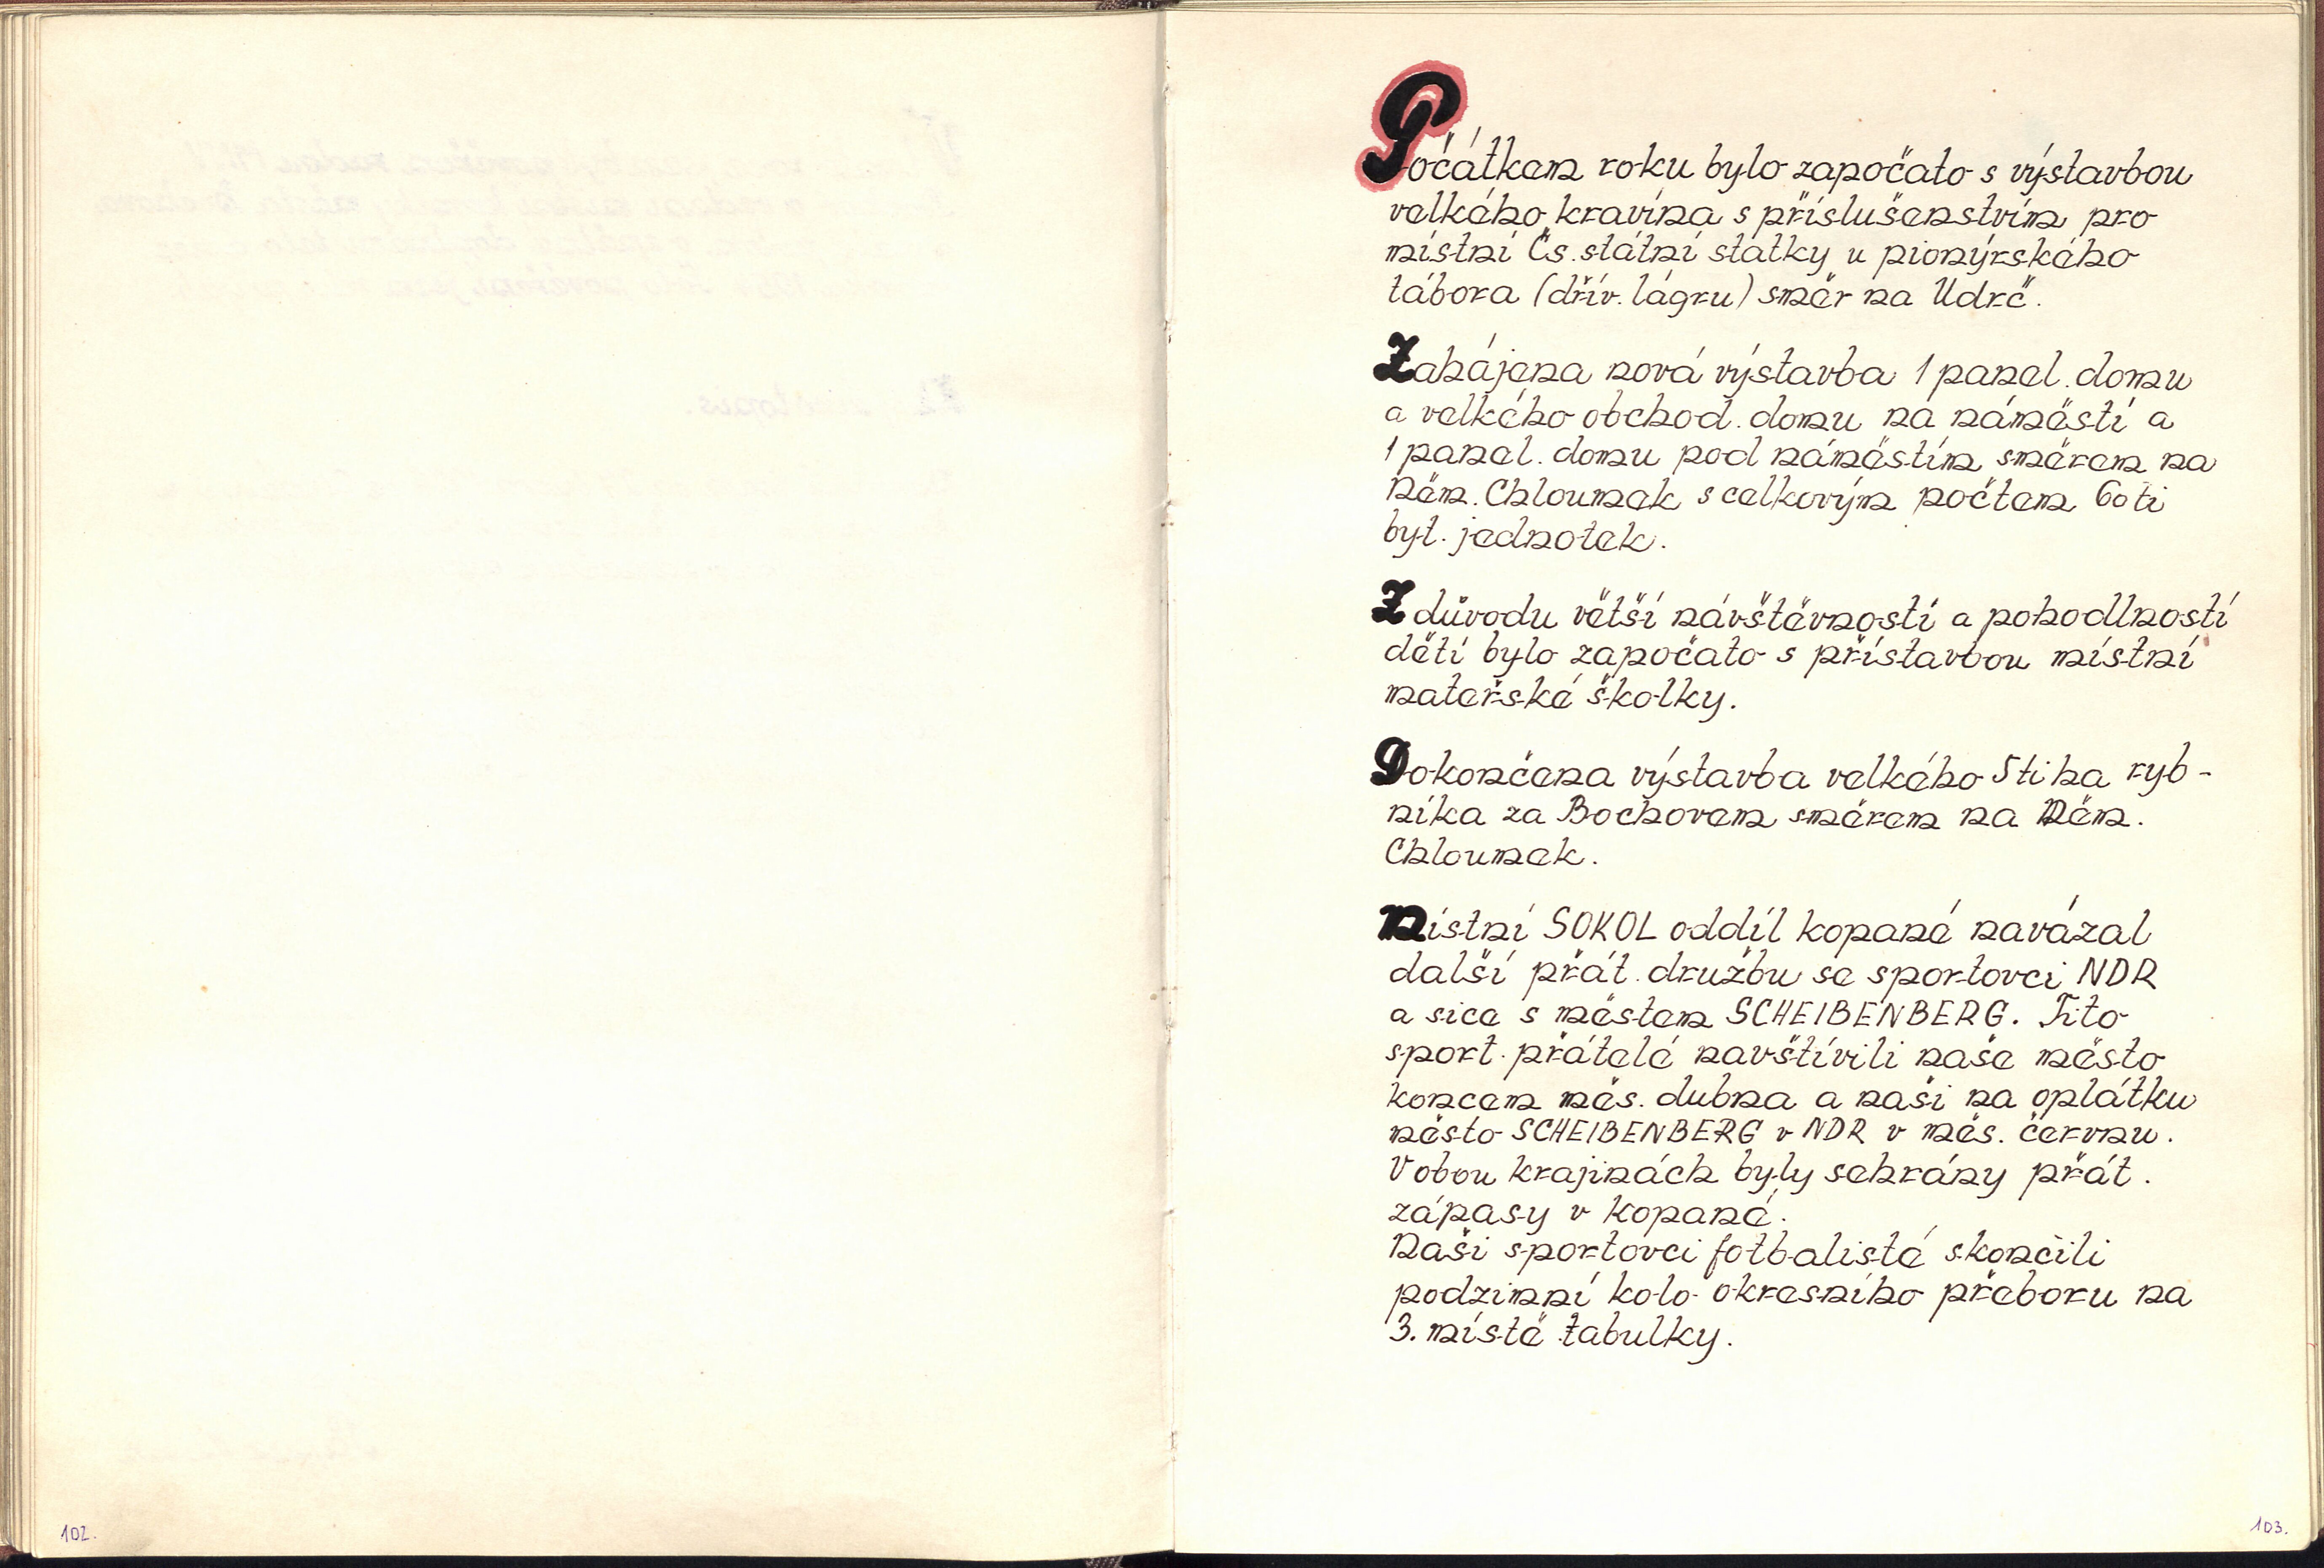 Počátkem roku bylo započato s výstavbou
velkého kravína s příslušenstvím pro
místní Čs. státní statky u pionýrského
tábora (dřív. lágru) směr na Udrč.
Zahájena nová výstavba 1 panel. domu
a velkého obchod. domu na náměstí a
1 panel. domu pod náměstím směrem na
Něm. Chloumek s celkovým počtem 60 ti
byt. jednotek.
Z důvodu větší návštěvnosti a pohodlností
dětí bylo započato s přístavbou místní
mateřské školky.
Dokončena výstavba velkého 5 ti ha ryb-
níka za Bochovem směrem na Něm.
Chloumek.
Místní SOKOL oddíl kopané navázal
další přát. družbu se sportovci NDR
a sice s městem SCHEIBENBERG. Tito
sport. přátelé navštívili naše město
koncem měs. dubna a naši na oplátku
město SCHEIBENBERG v NDR v měs. červnu.
V obou krajinách byly sehrány přát.
zápasy v kopané.
Naši sportovci fotbalisté skončili
podzimní kolo okresního přeboru na
3. místě tabulky.
102.
103.